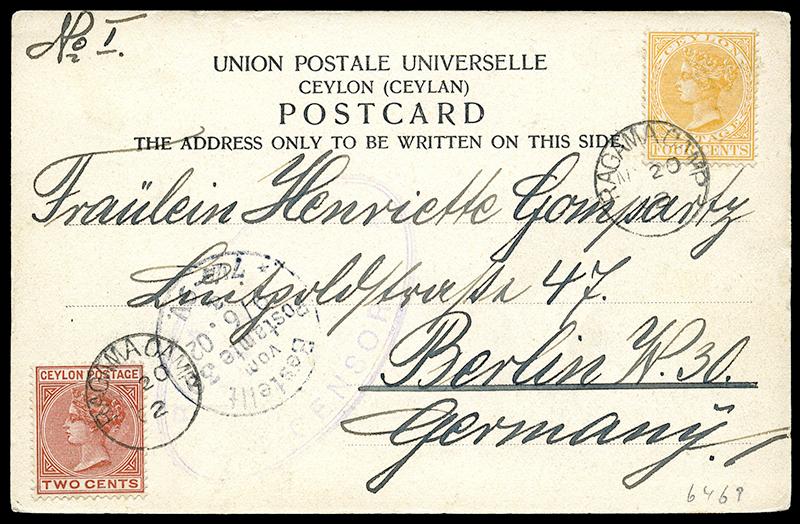 No I.
UNION POSTALE UNIVERSELLE
CEYLON (CEYLAN)
POSTCARD
THE ADDRESS ONLY TO BE WRITTEN ON THIS SIDE
CEYLON
POSTAGE
FOUR CENTS
RAGAMA CAMP
20
2
Fräulein Henriette Gompartz
Luitpoldstraße 47.
Berlin W. 30.
Germany.
CENSOR
Bestellt
vom
Postamte 30
9/6.02
RAGAMA CAMP
20
2
CEYLON POSTAGE
TWO CENTS
6469